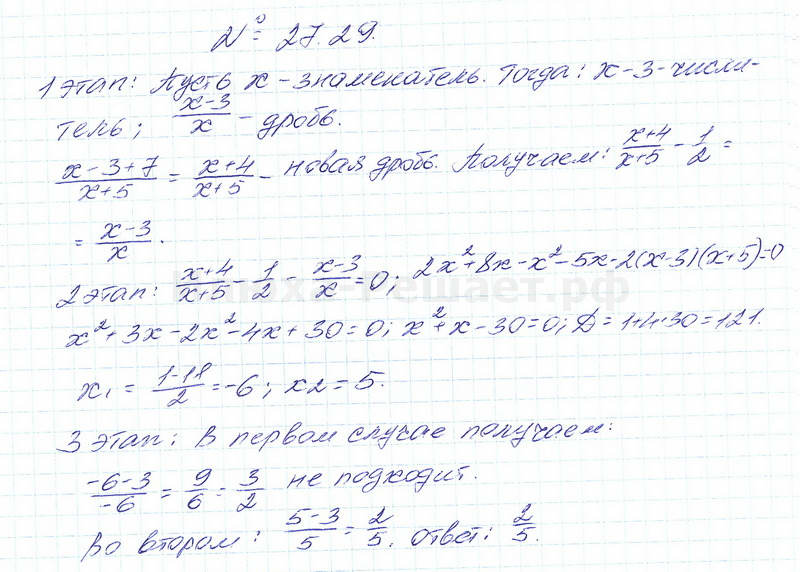 № 27.29.
1 этап: Пусть x – знаменатель. Тогда: x-3 – числи-
тель; (x-3)/x – дробь.
(x-3+7)/(x+5) = (x+4)/(x+5) – новая дробь. Получаем: (x+4)/(x+5) - 1/2 =
= (x-3)/x.
2 этап: (x+4)/(x+5) - 1/2 - (x-3)/x = 0; 2x²+8x-x²-5x-2(x-3)(x+5)=0
x²+3x-2x²-4x+30=0; x²+x-30=0; D=1+4·30=121.
x₁ = (-1-11)/2 = -6; x2=5.
3 этап: В первом случае получаем:
(-6-3)/(-6) = 9/6 = 3/2 не подходит.
Во втором: (5-3)/5 = 2/5. Ответ: 2/5.